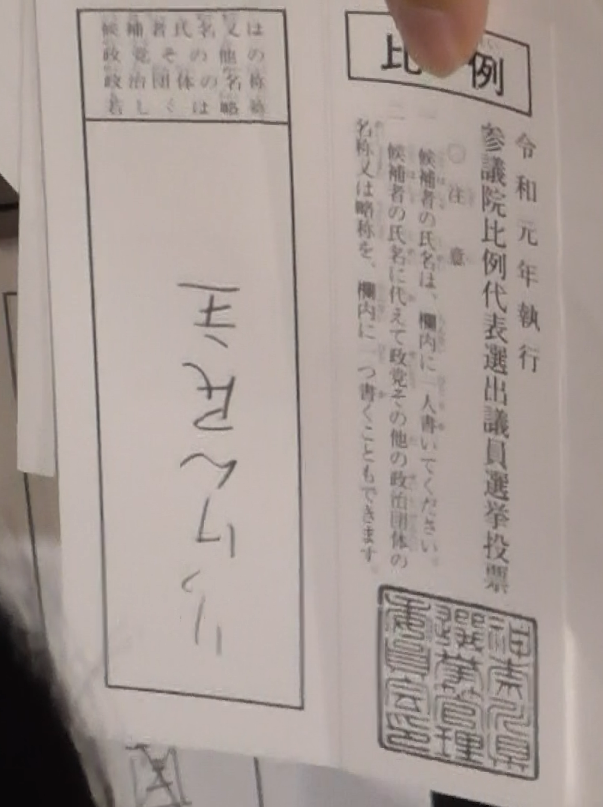 比例
令和元年執行
参議院比例代表選出議員選挙投票
○注意
一 候補者の氏名は、欄内に一人書いてください。
二 候補者の氏名に代えて政党その他の政治団体の
名称又は略称を、欄内に一つ書くこともできます。
神奈川県
選挙管理
委員会印
候補者氏名又は
政党その他の
政治団体の名称
若しくは略称
りっけん民主